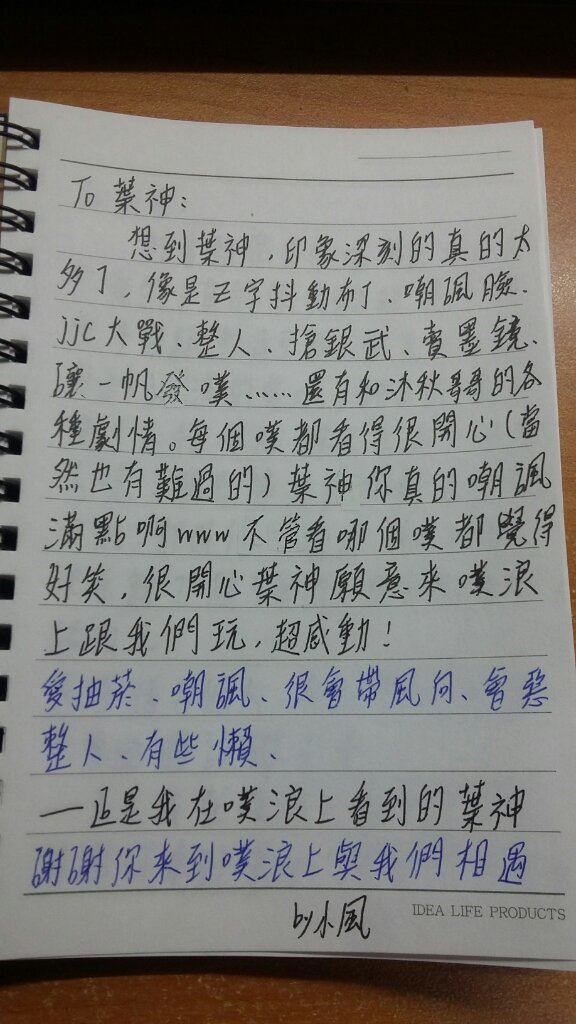 To 葉神：
想到葉神，印象深刻的真的太
多了，像是Z字抖動布丁、嘲諷臉、
JJC大戰、整人、搶銀武、賣墨鏡、
讓一帆發噗……還有和沐秋哥哥的各
種劇情。每個噗都看得很開心（當
然也有難過的）葉神你真的嘲諷
滿點啊www不管看哪個噗都覺得
好笑，很開心葉神願意來噗浪
上跟我們玩，超感動！
愛抽菸、嘲諷、很會帶風向、會惡
整人、有些懶、
——這是我在噗浪上看到的葉神
謝謝你來到噗浪上與我們相遇
by小風
IDEA LIFE PRODUCTS